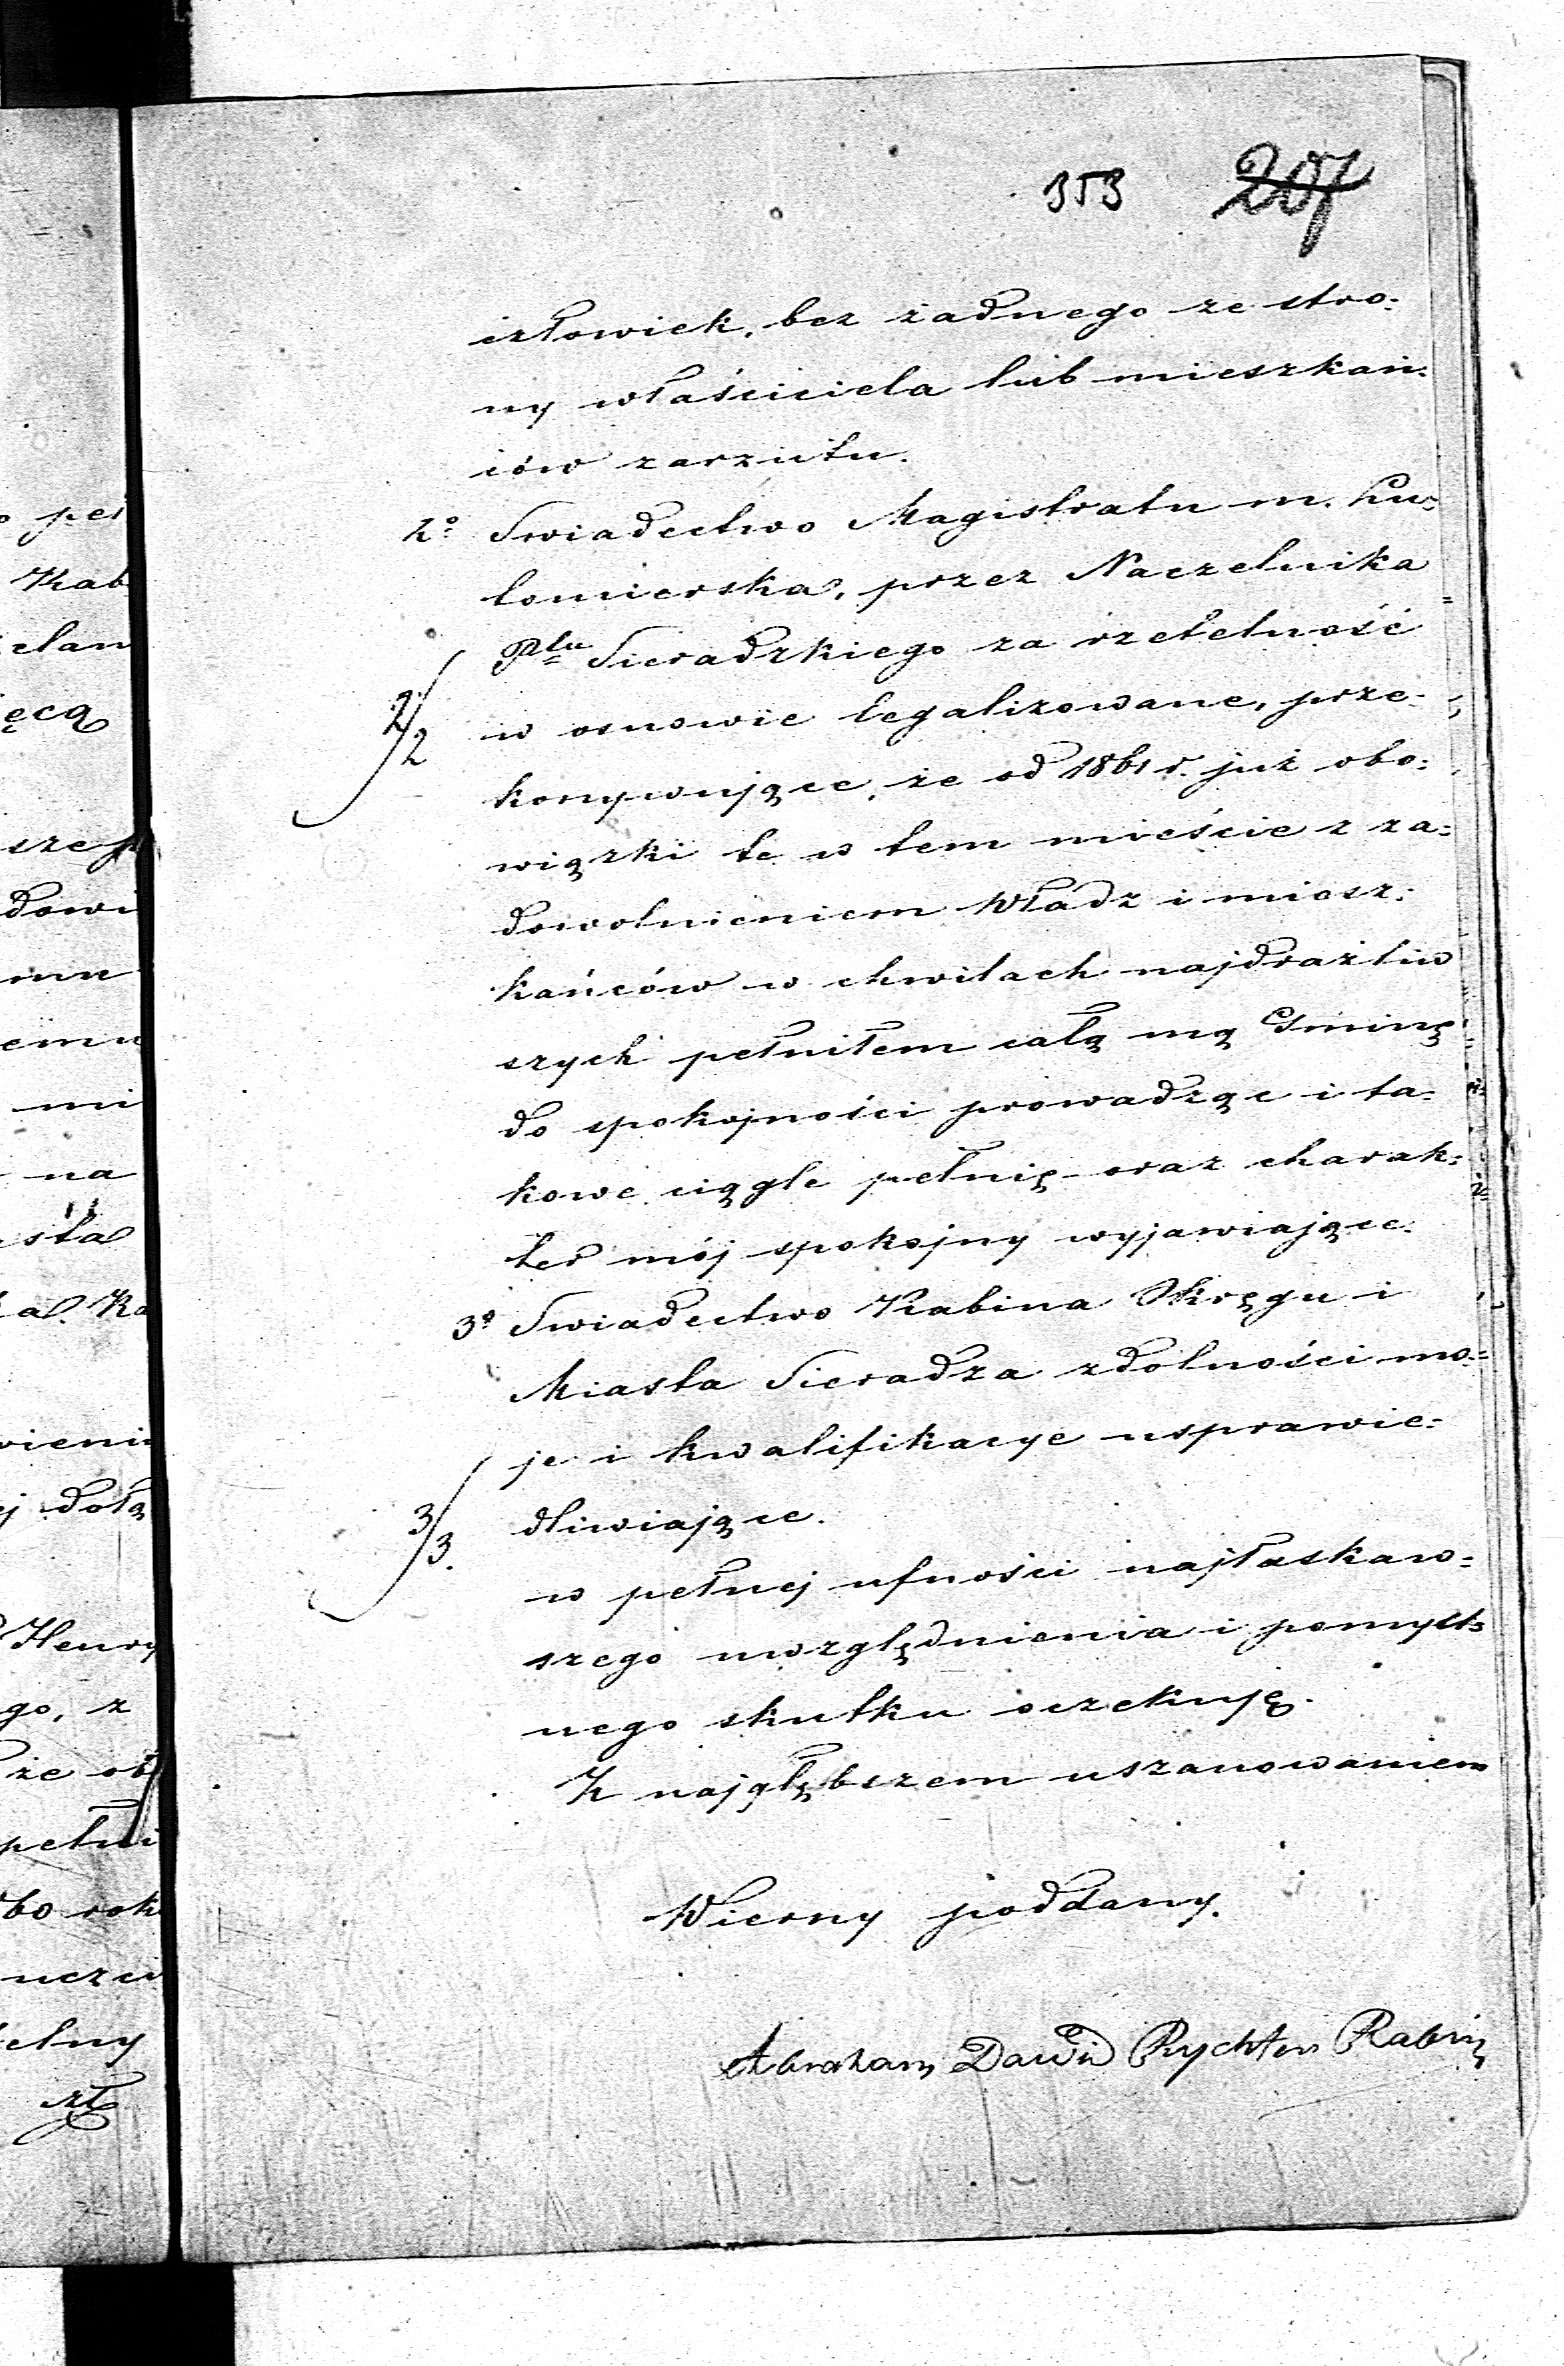 353 207
człowiek, bez żadnego ze stro=
ny właściciela lub mieszkań=
ców zarzutu.
2º Swiadectwo Magistratu m. Lu=
tomierska, przez Naczelnika
Ptu Sieradzkiego za rzetelność
2/2 w osnowie legalizowane, prze=
konywujące, że od 1861 r. już obo=
wiązki te w tem mieście z za=
dowolnieniem Władz i miesz=
kańców w chwilach najdrażliw
szych pełniłem całą mą Gminę
do spokojności prowadząc i ta=
kowe ciągle pełnię oraz charak=
ter mój spokojny wyjawiające.
3º Swiadectwo Rabina Okręgu i
Miasta Sieradza zdolności mo=
je i kwalifikacye usprawie=
3/3. dliwiające.
w pełnej ufności najłaskaw=
szego uwzględnienia i pomyśl=
nego skutku oczekuję.
Z najgłębszem uszanowaniem
Wierny poddany.
Abraham Dawid Rychter Rabin